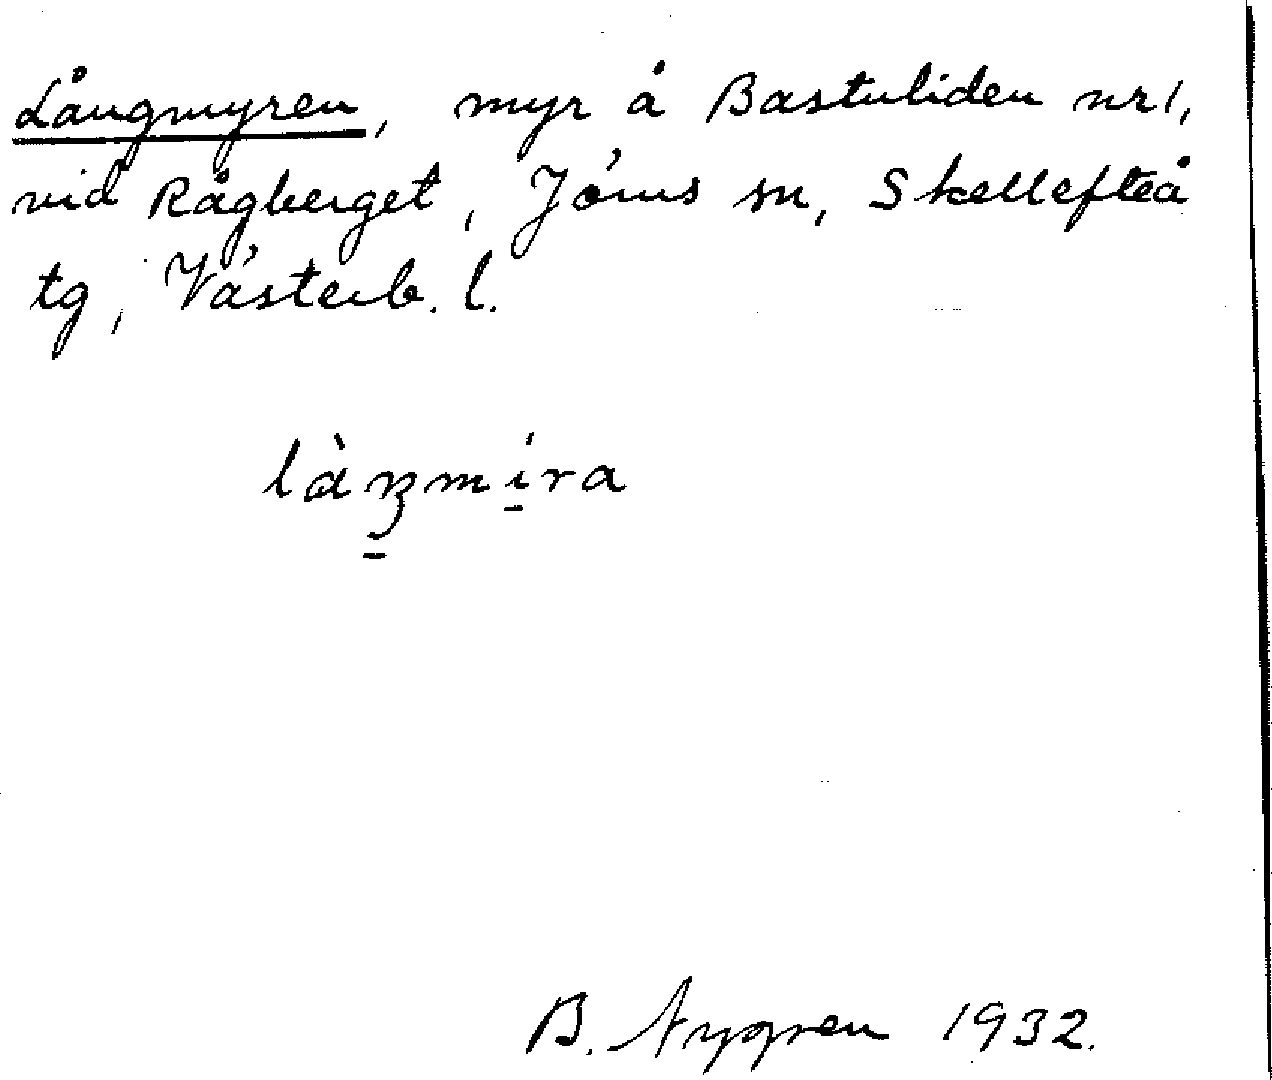 Långmyren, myr å Bastuliden nr 1,
vid Rågberget, Jörns sn, Skellefteå
tg, Västerb. l.
B. Nygren 1932.